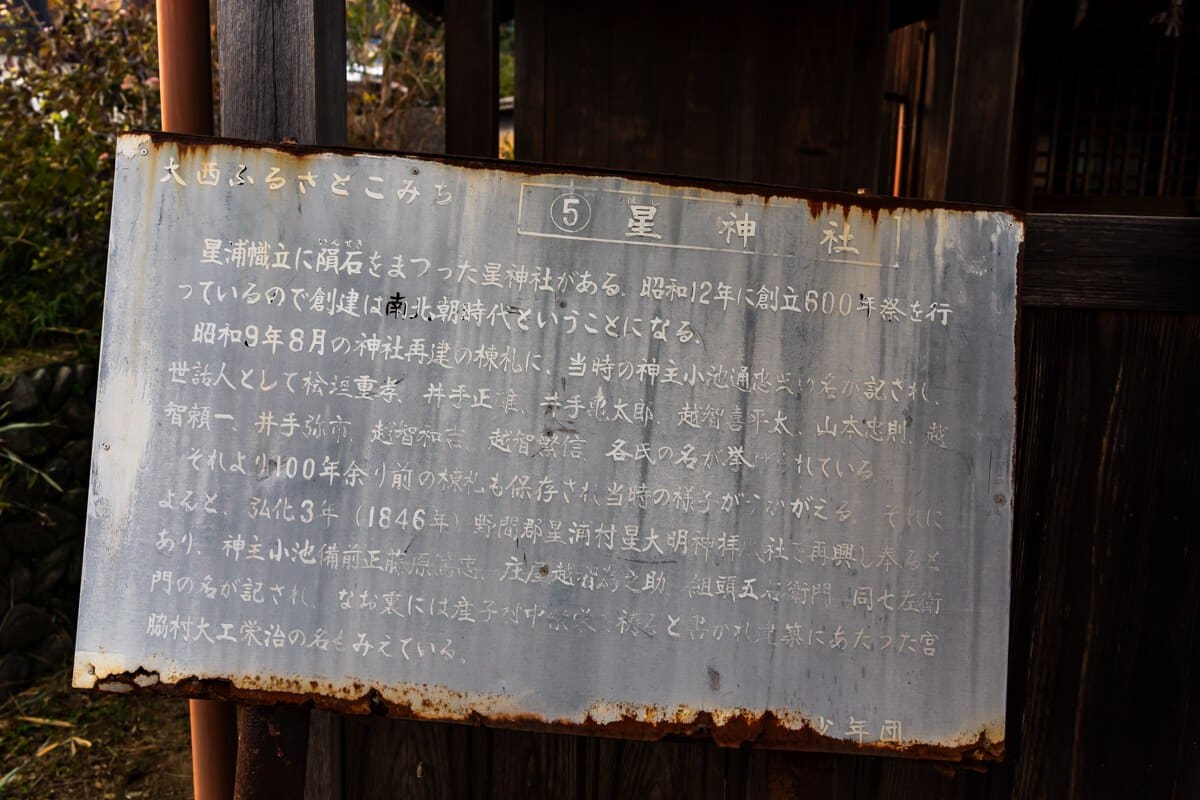 大西ふるさとこみち
⑤ 星神社
ほし
いんせき
星浦幟立に隕石をまつった星神社がある。昭和12年に創立600年祭を行
っているので創建は南北朝時代ということになる。
昭和9年8月の神社再建の棟札に、当時の神主小池通忠 名が記され、
世話人として桧垣重孝、井手正雄、井手忠太郎、越智喜平太、山本忠則、越
智頼一、井手弥市、越智和吉、越智繁信、各氏の名が挙げられている
それより100年余り前の棟札も保存され当時の様子がうかがえる。それに
よると、弘化3年(1846年)野間郡星浦村星大明神拝 社 再興し奉ると
あり、神主小池備前正藤原篤忠、庄屋越智為之助 組頭五右衛門 同七左衛
門の名が記され、なお裏には産子村中 と書かれ建築にあたった宮
脇村大工栄治の名もみえている。
少年団